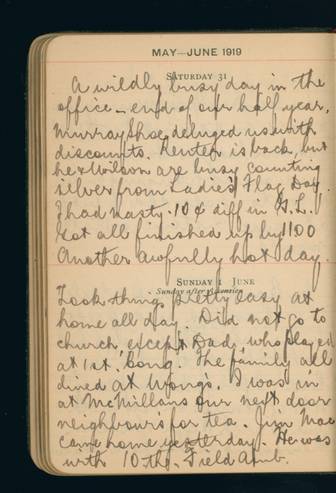 MAY—JUNE 1919
SATURDAY 31
A wildly busy day in the
office – end of our half year.
Murray Shoe deluged us with
discounts. is back, but
he & Wilson are busy counting
silver from Ladies' Flag Day.
I had nasty .10¢ diff in G.L.!
Got all finished up by 11 00
Another awfully hot day.
SUNDAY 1 JUNE
Sunday after Ascension
Took things pretty easy at
home all day. Did not go to
church, except Dad, who played
at 1st, Cong. The family all
dined at Wongs. I was in
at McMillans our next door
neighbours for tea. Jim Mac
came home yesterday. He was
with 10th. Field Amb.